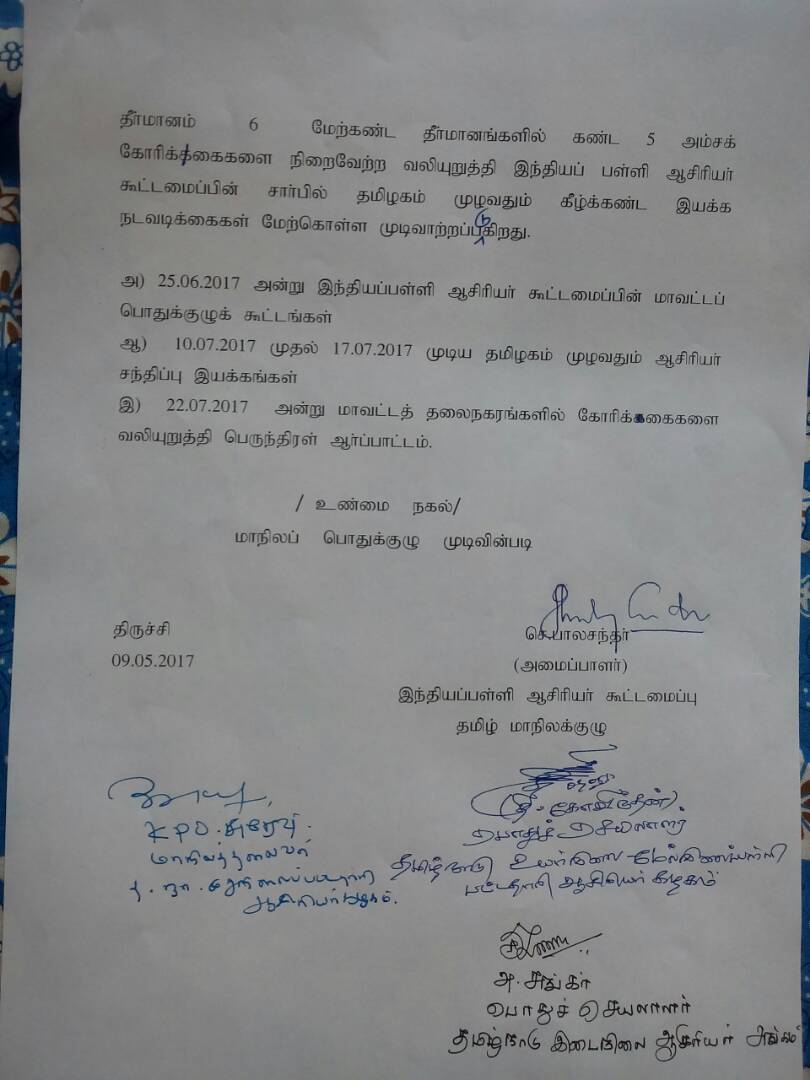 தீர்மானம் 6 மேற்கண்ட தீர்மானங்களில் கண்ட 5 அம்சக்
கோரிக்கைகளை நிறைவேற்ற வலியுறுத்தி இந்தியப் பள்ளி ஆசிரியர்
கூட்டமைப்பின் சார்பில் தமிழகம் முழுவதும் கீழ்க்கண்ட இயக்க
நடவடிக்கைகள் மேற்கொள்ள முடிவாற்றப்படுகிறது.
அ) 25.06.2017 அன்று இந்தியப்பள்ளி ஆசிரியர் கூட்டமைப்பின் மாவட்டப்
பொதுக்குழுக் கூட்டங்கள்
ஆ) 10.07.2017 முதல் 17.07.2017 முடிய தமிழகம் முழவதும் ஆசிரியர்
சந்திப்பு இயக்கங்கள்
இ) 22.07.2017 அன்று மாவட்டத் தலைநகரங்களில் கோரிக்கைகளை
வலியுறுத்தி பெருந்திரள் ஆர்ப்பாட்டம்.
/ உண்மை நகல்/
மாநிலப் பொதுக்குழு முடிவின்படி
திருச்சி
செ.பாலசந்தர்
09.05.2017
(அமைப்பாளர்)
இந்தியப்பள்ளி ஆசிரியர் கூட்டமைப்பு
தமிழ் மாநிலக்குழு
KPO. சுரேஷ்.
மாநிலத்தலைவர்
ஆசிரியர் கழகம்.
பொதுச் செயலாளர்
தமிழ்நாடு உயர்நிலை மேல்நிலைப்பள்ளி
பட்டதாரி ஆசிரியர் கழகம்
அ. சங்கர்
பொதுச் செயலாளர்
தமிழ்நாடு இடைநிலை ஆசிரியர் சங்கம்